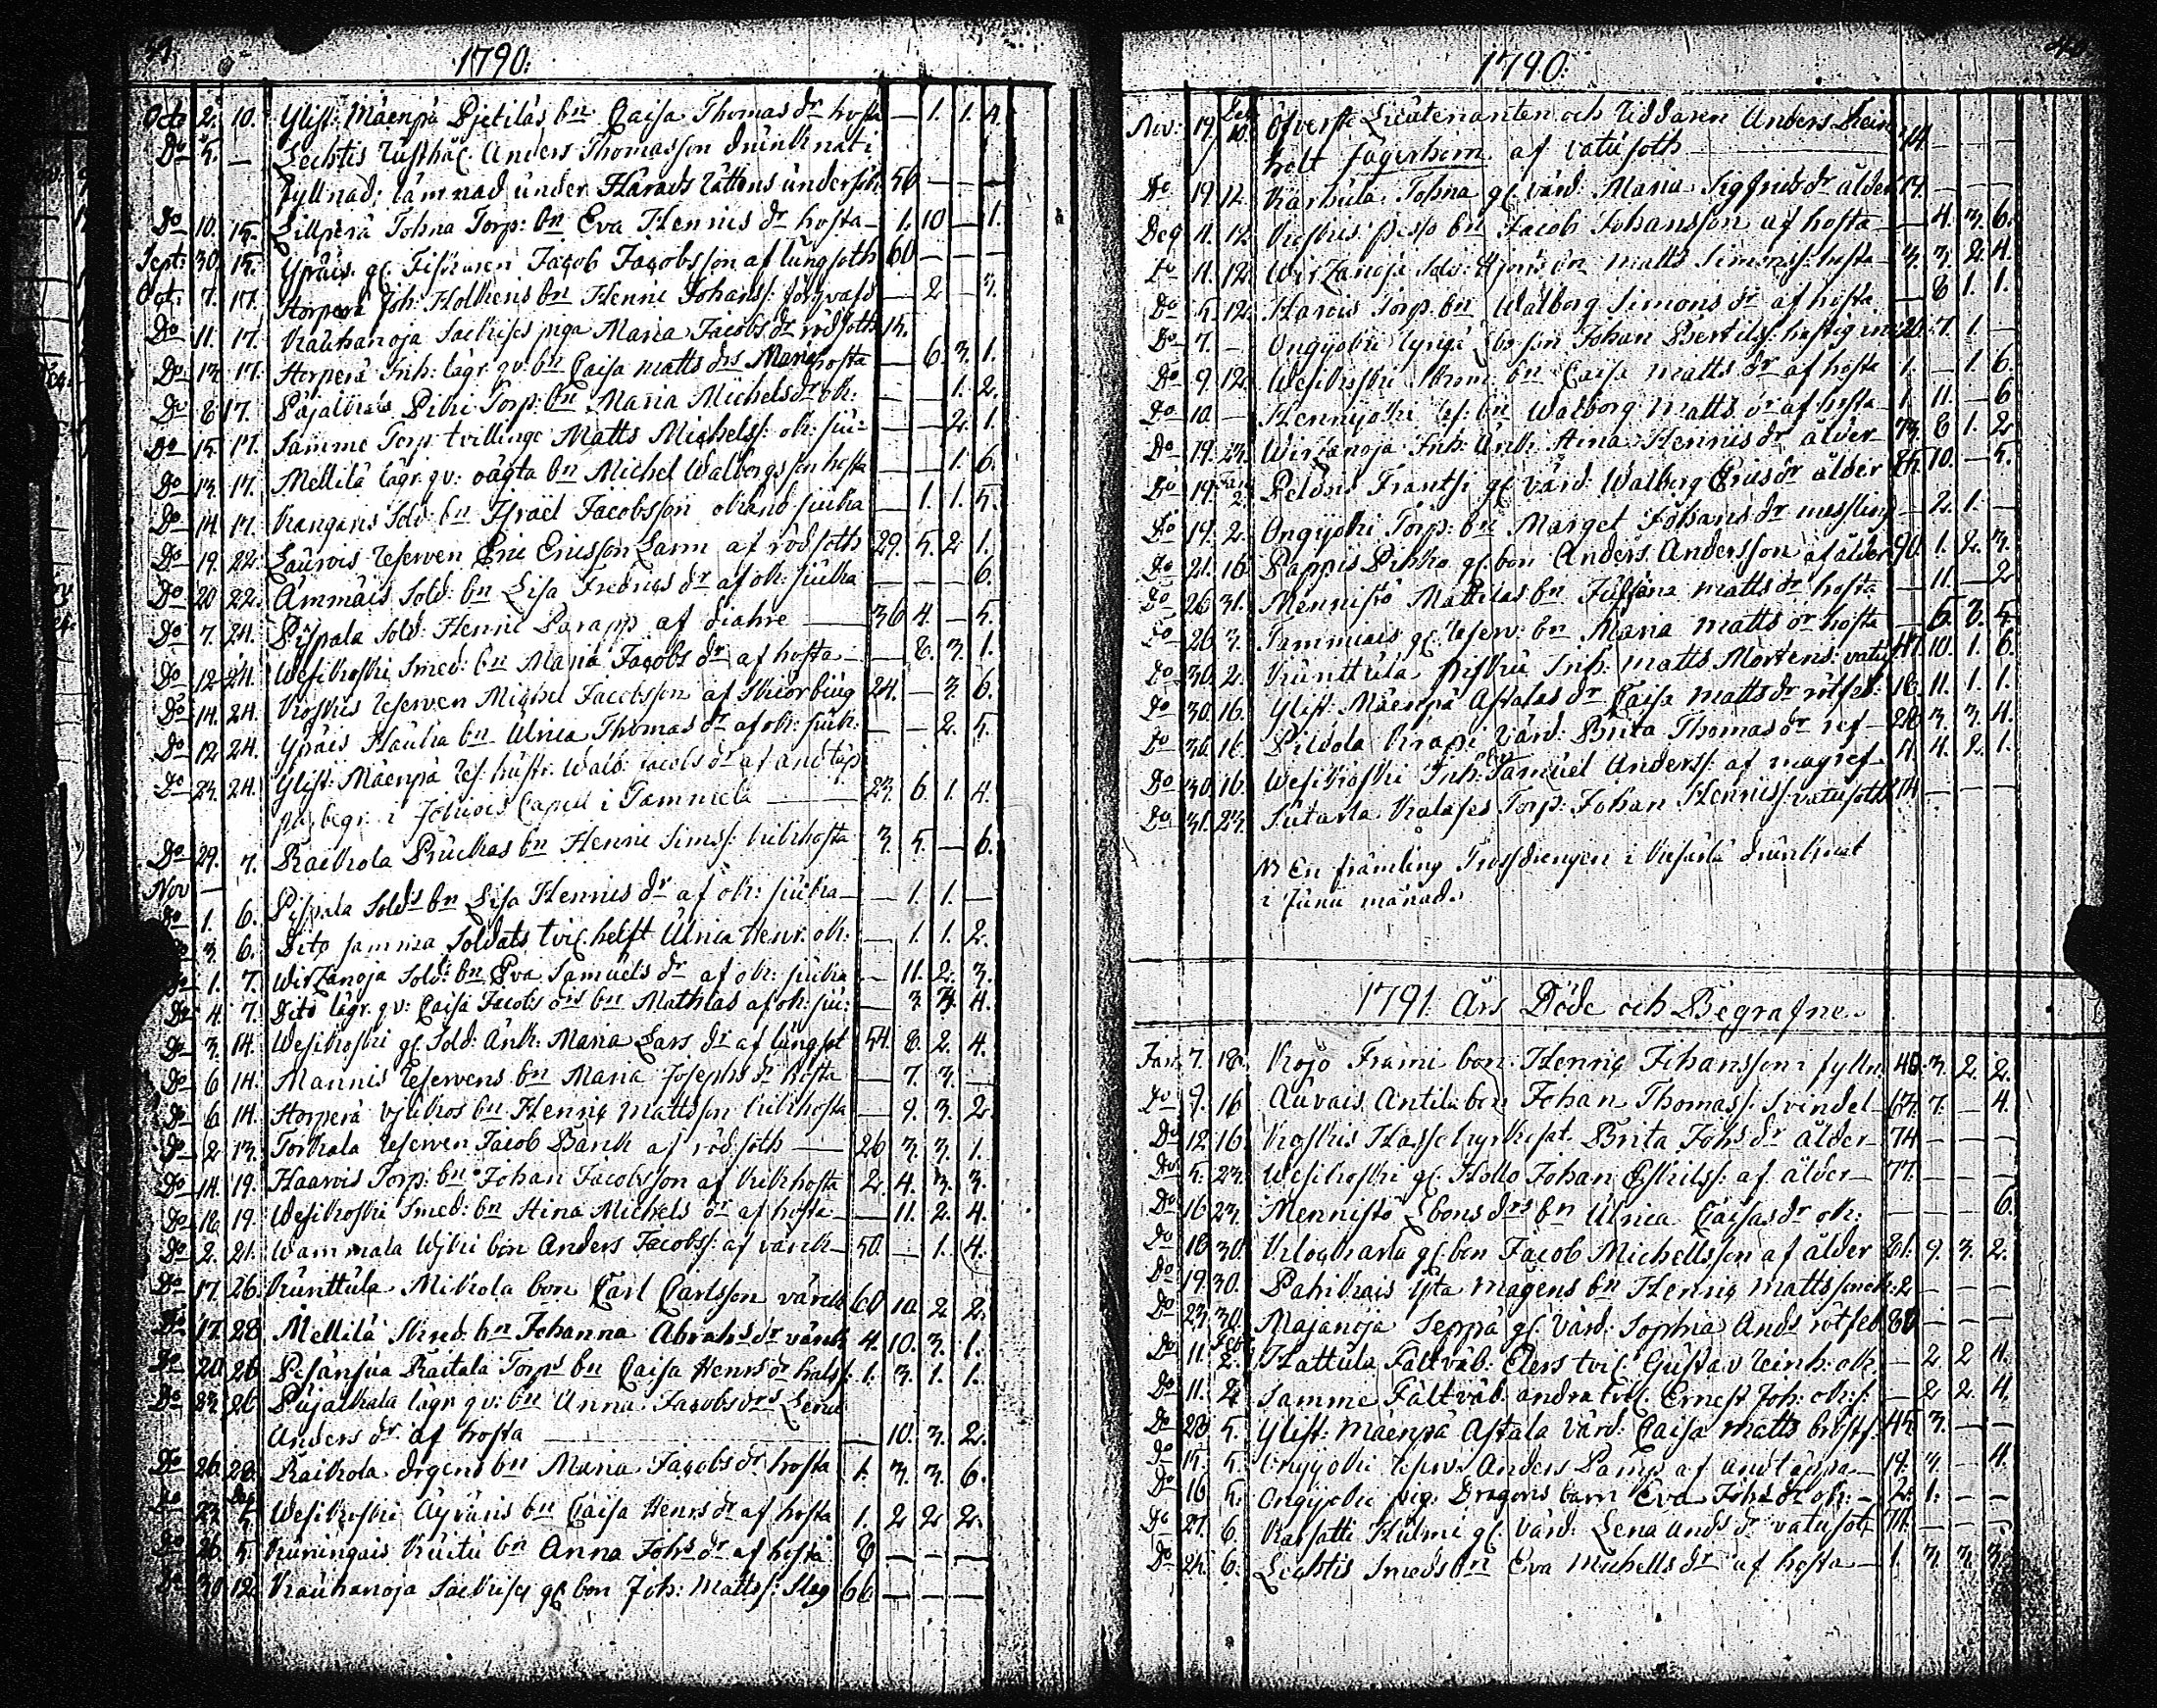 1790.
Oct: 2. 10. Ylist: Mäenpä Pietiläs bn Caisa Thomas dr hosta — 1. 1. 4.
Do 5. — Lechtis Rusthål: Anders Thomasson drunknat i
fyllnad; lämnad under Härads Rättens undersök: 56 — — —
Do 10. 15. Lillperä Johna Torp: bn Eva Hennis dr hosta — 1. 10 — 1.
Sept: 30. 15. Ypäis gl. Fiskaren Jacob Jacobsson af lungsoth 60 — — —
Oct: 7. 17. Horperä Joh: Holkens bn Henric Johanss: — 2 — 3.
Do 11. 17. Kauhanoja Sackises piga Maria Jacobs dr rödsoth 15.
Do 13. 17. Horperä Inh: lägr. qv: bn Caisa Matts drs Maria hosta — 6. 3. 1.
Do 8 17. Pajalkais Pikki Torp: bn Maria Michels dr ok: — — 1. 2.
Do 15. 17. Samme Torp: tvillinge Matts Michelss: ok: siu: — — 2. 1.
Do 13. 17. Mellilä lägr. qv: oägta bn Michel Walborgsson hosta — — 1. 6.
Do 14. 17. Kangaris Sold: bn Israel Jacobsson okänd siuka — 1. 1. 5.
Do 19. 22. Laurois Reserven Eric Ericsson Lann af rödsoth 29. 5. 2 1.
Do 20 22. Ammäis Sold: bn Lisa Fredrics dr af ok: siuka — — — 6.
Do 7. 24. Pispala Sold: Henric Parapp af diahre — 36 4. — 5.
Do 12 24. Wesikoski Smed: bn Maria Jacobs dr af hosta — 8. 3. 1.
Do 14. 24. Koskis Reserven Michel Jacobsson af Skiörbiug 24. — 3. 6.
Do 12 24. Ypäis Hauka bn Ulrica Thomas dr af ok: siuk: — — 2. 5.
Do 23. 24. Ylist: Mäenpä Res: hustr. Walb: Jacobs dr af andtäp
pa, begr: i Jokiois Capell i Tammela — 23. 6. 1. 4.
Do 29. 7. Raikkola Prukas bn Henric Simss: kikhosta 3. 5. — 6.
Nov —
Do 1. 6. Pispala Solds bn Lisa Hennis dr af ok: siuka — 1. 1. —
Do 3. 6. Dito samma Soldats tvil. helft Ulrica Henr. ok: — 1. 1. 2.
Do 1. 7. Wirzanoja Sold: bn Eva Samuels dr af ok: siuka — 11. 2. 3.
Do 4. 7. Dito lägr. qv: Caisa Jacobs drs bn Mathias af ok: siu: — 3 3. 4.
Do 3. 14. Wesikoski gl. Sold: Änk: Maria Lars dr af lungsot 54. 8. 2. 4.
Do 6 14. Mannis Reservens bn Maria Josephs dr hosta — 7. 3. —
Do 6 14. Horperä bn Henric Mattsson kikhosta — 9. 3. 2
Do 2 13. Torkala Reserven Jacob Bänk af rödsoth — 26 3. 3. 1.
Do 14. 19. Haarois Torp: bn Johan Jacobsson af kikhosta 2. 4. 3. 3.
Do 18. 19. Wesikoski Smed: bn Hina Michels dr af hosta — 11. 2. 4.
Do 2. 21. Wammala Wjkki bon Anders Jacobss: af värck — 50. — 1. 4.
Do 17. 26. Kunttula Mikkola bon Carl Carlsson värck 60 10 2 2.
Do 17. 28 Mellilä Skred: bn Johanna Abrahs dr värck 4. 10. 3. 1.
Do 20. 26 Pesänsua Raitala Torps bn Caisa Henrs dr halss: 1. 3. 1. 1.
Do 23. 26 Pajalkala lägr qv: bn Anna Jacobs drs Lena
Anders dr af hosta — — 10. 3. 2.
Do 26. 28. Raikkola drgens bn Maria Jacobs dr hosta 1. 3. 3. 6.
Do 27. Dec 5. Wesikoski Äyräris bn Caisa Henrs dr af hosta 1. 2 2 2.
Do 26. 5. Kuningais Kuitu bn Anna Johs dr af hosta 8 — — —
Do 30 12. Kauhanoja Sackises gl bon Joh: Mattss: Slag 66 — — —
1790.
Nov: 19. Dec 10. Öfverste Lieutenanten och Riddaren Anders Rein
holt Jägerhorn af vatusoth — 74 — — —
Do 19. 12. Karhula Johna gl. värd: Maria Sigfrids dr ålder 74. — — —
Dec 4. 12. Koskis bn Jacob Johansson af hosta — 4. 3. 6.
Do 4. 12. Wirzanoja Sold: bn Matts Simonss: hosta — 3. 3. 2. 4.
Do 5. 12. Harois Torp: bn Walborg Simons dr af hosta — 8 1. 1.
Do 7. — Ongyoki Johan Bertilss: 7. 1. —
Do 9. 12. Wesikoski bn Caisa Matts dr af hosta 1. — 1. 6.
Do 10 — Hennijoki bn Walborg Matts dr af hosta — 1. 11. — 6
Do 19. 23. Wirzanoja Inh: Änk: Anna Hennis dr ålder — 73. 8 1. 2
Do 19. Jan 2. Peldons Frantsi gl. Värd: Walborg Erics dr ålder 85. 10. — 5.
Do 19. 2. Ongyoki Torp: bn Marget Johans dr messling — 2. 1. —
Do 21. 16. Pappis Pikko gl. bon Anders Andersson af ålder 90. 1. 2. 3.
Do 26 31. Mennistö Mattilas bn Justina Matts dr hosta — 11. — 2
Do 26 3. Tammiais gl. Reserv: bn Maria Matts dr hosta — 5. 3. 5
Do 30. 2. Kunttula Inh: Matts Mårtens: vatus: 47. 10. 1. 6.
Do 30. 16. Ylist: Mäenpä Astalas dr Caisa Matts dr rötfeb: 18. 11. 1. 1.
Do 30. 16. Pildola Krapi Värd: Brita Thomas dr ref — 28. 3. 3. 4.
Do 30. 16. Wesikoski Inh: Samuel Anderss: af magref — 4. 4. 2. 1.
Do 31. 23. Sutarla Kalases Torp: Johan Henriss: vatusoth 74 — — —
NB En främling Trossdrengen i drunknat
i Junii månad.
1791. Års Döde och Begrafne.
Jan: 7. 18. Kojo Frami bon Henric Johansson i fylln: 48. 3 2. 2.
Do 9. 16 Auvais Antila bon Johan Thomass: Svindel — 63. 7. — 4.
Do 12. 16. Koskis Hasse Brita Johs dr ålder — 74 — — —
Do 5. 23. Wesikoski gl. Hollo Johan Eskilss: af ålder — 77. — — —
Do 16 23. Mennistö Lbons drs bn Ulrica Caisas dr ok: — — — 6.
Do 18 30. gl. bon Jacob Michelsson af ålder 81. 9. 3. 2.
Do 19. 30. Pahikkais Ylta Mågens bn Henric Mattsson ok: 2 — — —
Do 23. 30. Majanoja Seppä gl. Värd: Sophia Ands rötfeb: 80 — — —
Do 11. Feb 2. Hattula Fältväb: Elers tvil: Gustav Reinh: ok — 2 2 4.
Do 11. 2 Samme Fältväb: andra tvil Ernest Joh: ok: s: — 2 2. 4.
Do 28. 5. Ylist: Mäenpä Astala Värd: Caisa Matts bröstf: 45. 3. — —
Do 15. 5. Ongyoki Reserv: Anders Pamp af andtäppa — 19. 3. — 4.
Do 16 5. Ongyoki Dragons barn Eva Johs dr ok: — 2. 1. — —
Do 27. 6. Karsatti Hulmi gl. Värd: Lena Ands dr vatusot 77. — — —
Do 25. 6. Lechtis Smeds bn Eva Michells dr af hosta — 1. 3. 3. 3.